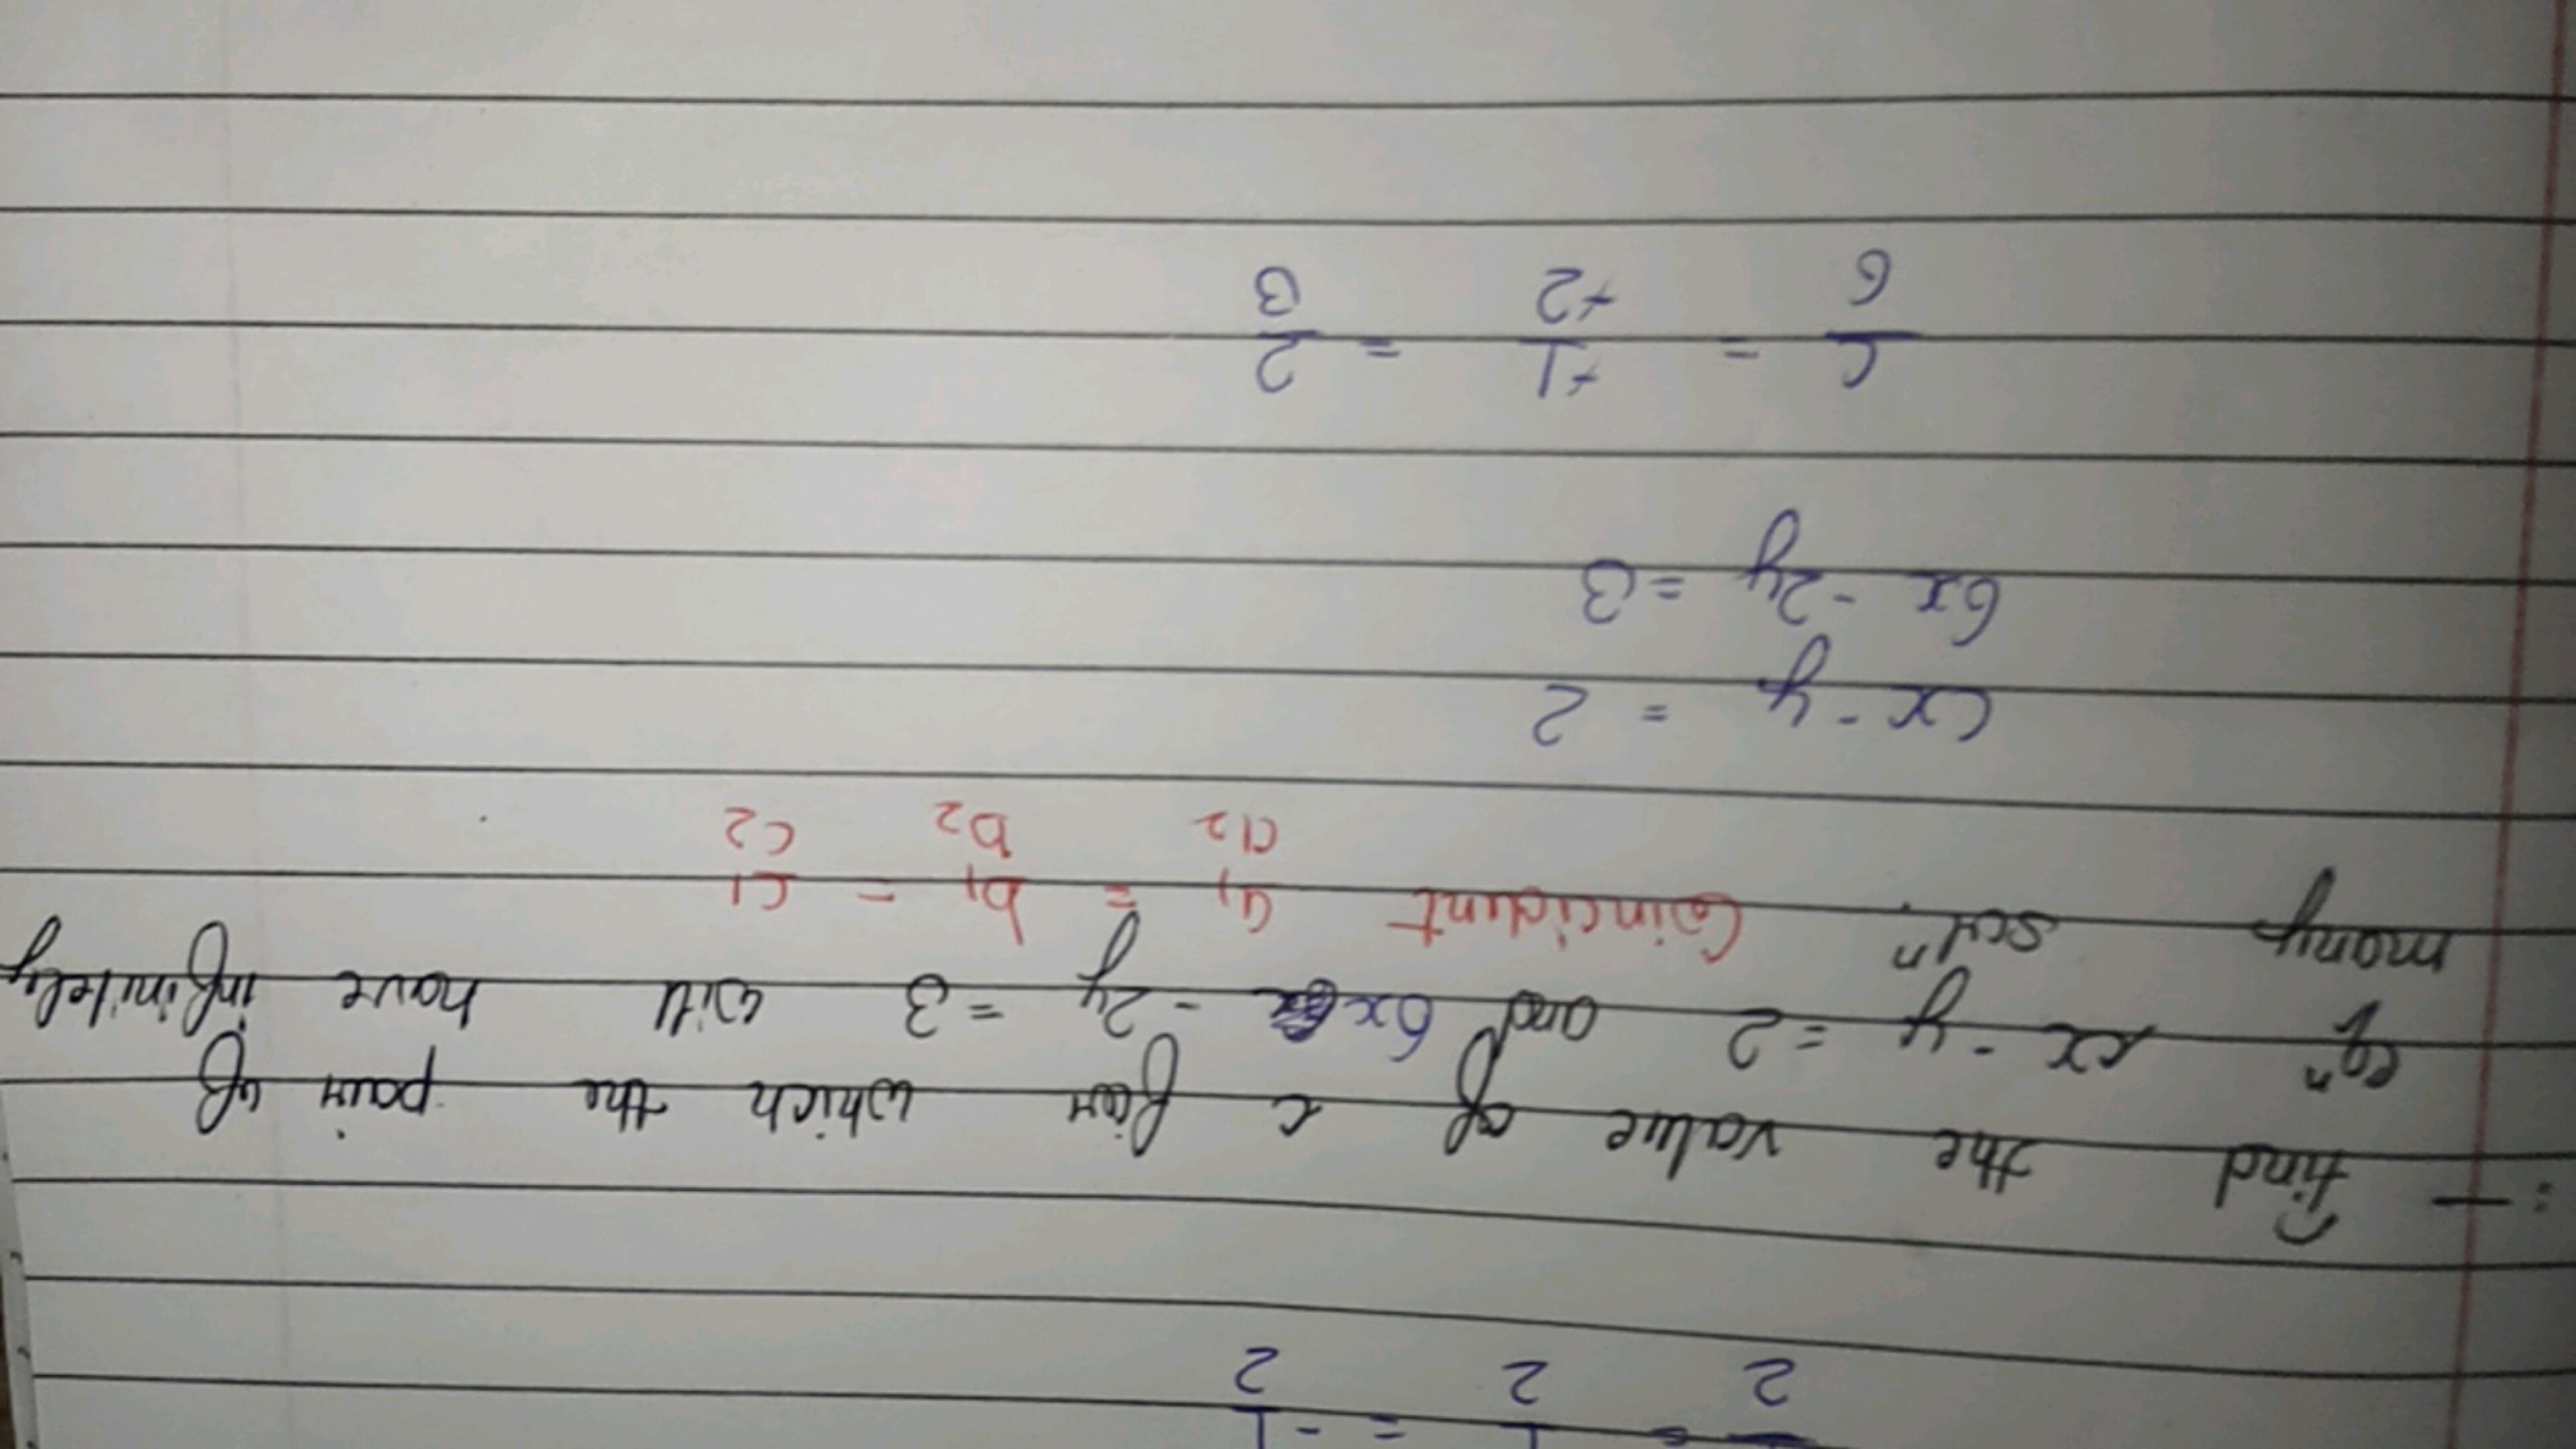 2 = 1/2 = -1/2
:- find the value of c for which the pair of
eqn cx - y = 2 and 6x - 2y = 3 will have infinitely
many soln. Coincident a1/a2 = b1/b2 = c1/c2
cx - y = 2
6x - 2y = 3
c/6 = +1/+2 = 2/3